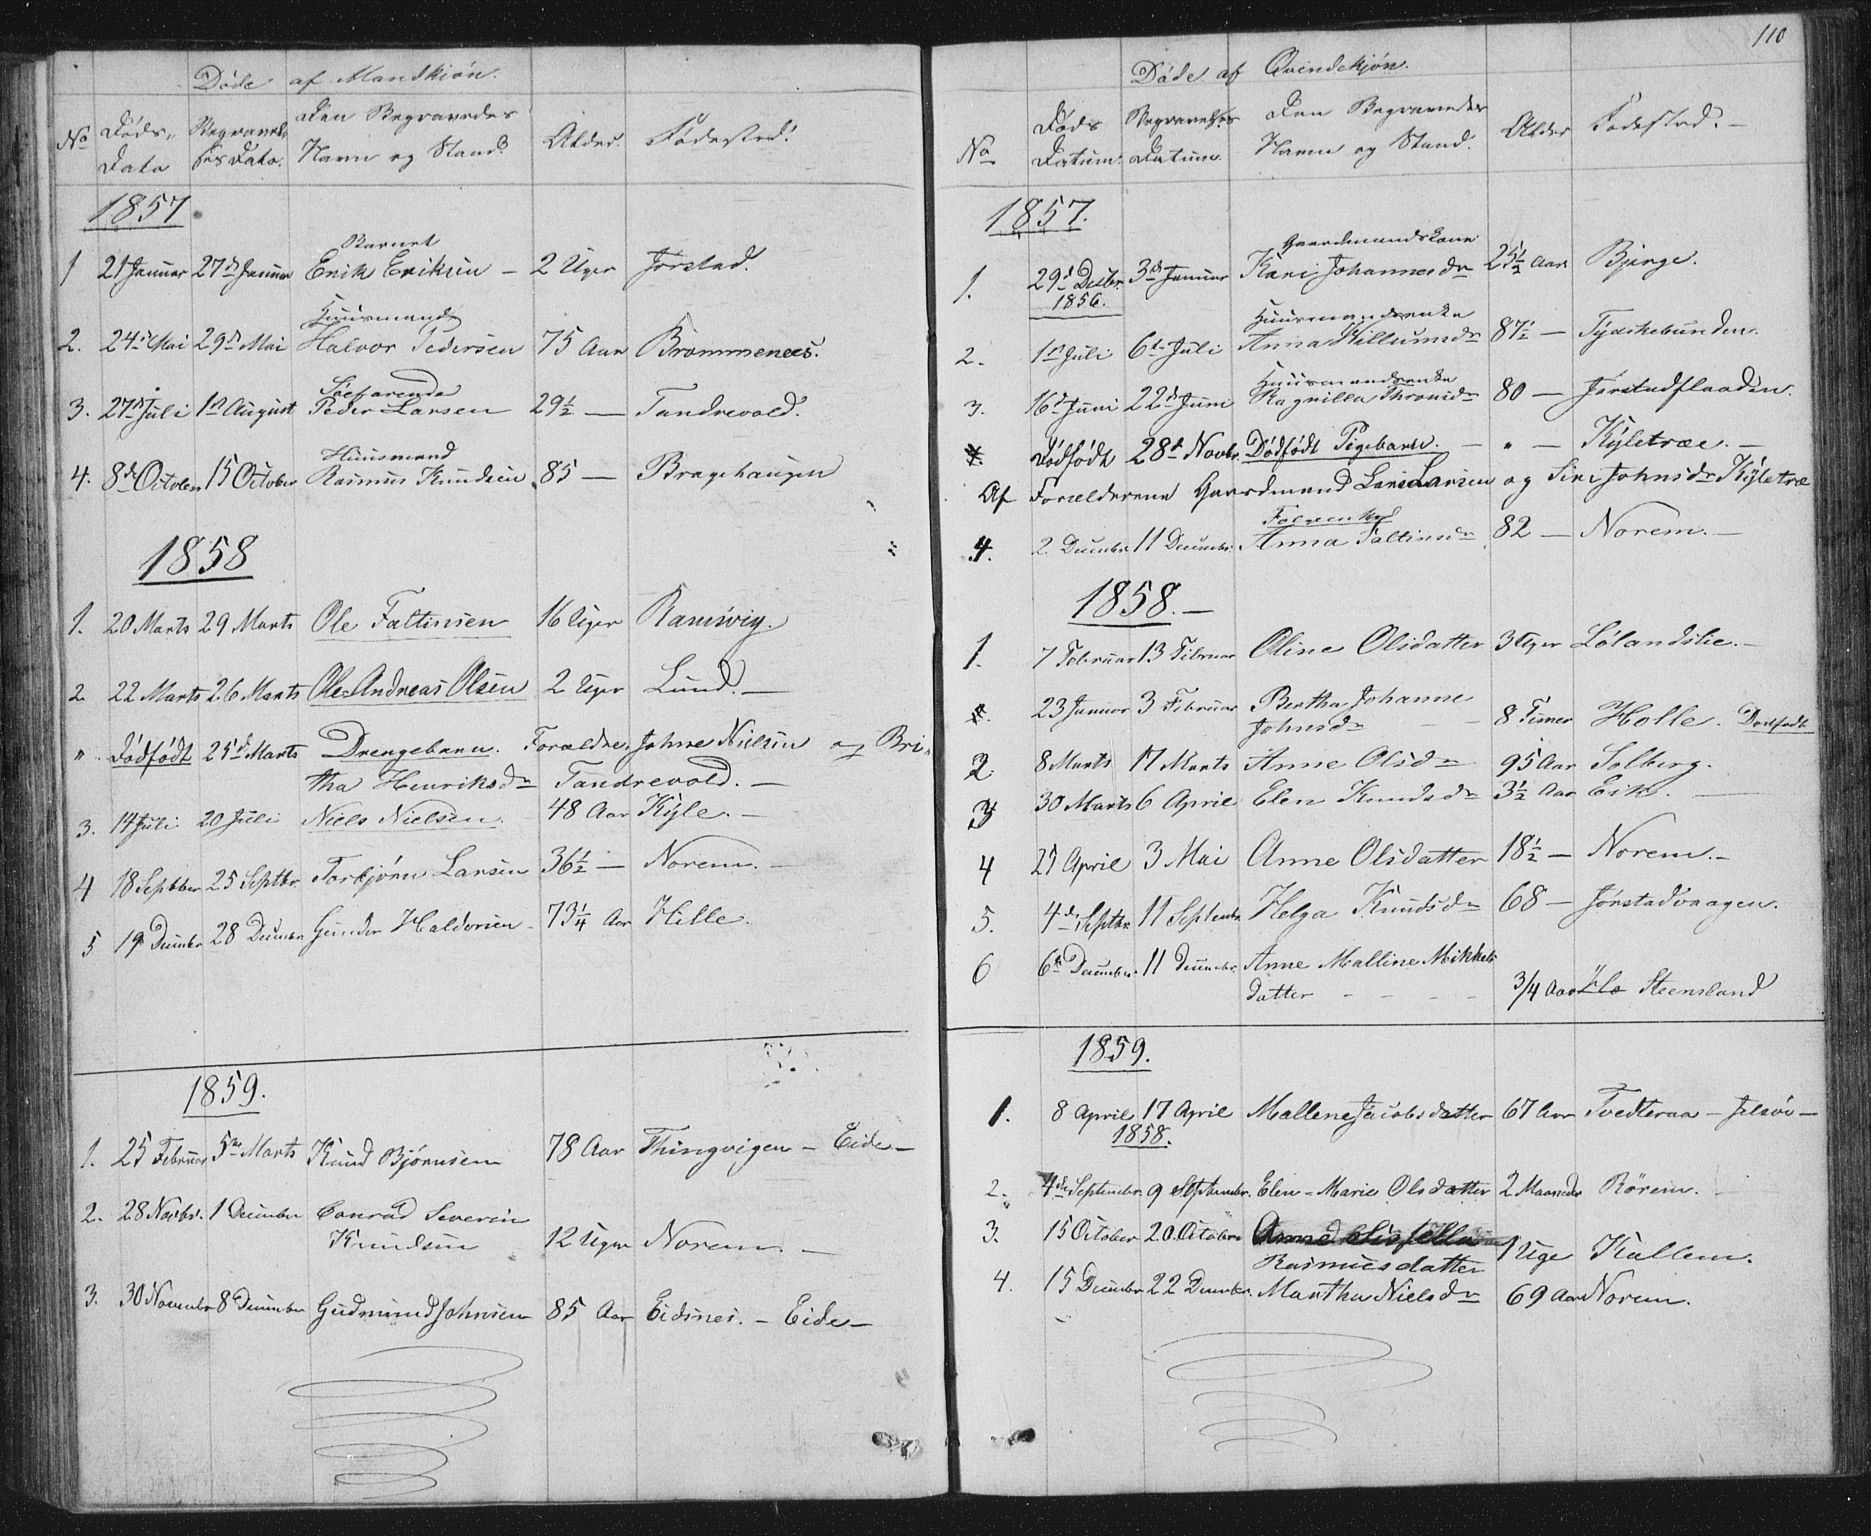 Døde af Mandkiøn.
No Døds Data Begravelses Data. Den Begravedes Navn og Stand. Alder. Fødested.
1857
Barnet
1 21 Januar 27de Januar Erik Eriksen – 2 Uger Jørstad.
Huusmand
2. 24de Mai 29de Mai Halvor Pedersen 75 Aar Brommenees.
Søefarende
3. 27de Juli 1ste August Peder Larsen 29½ — Tandrevold.
Huusmand
4. 8de October 15 October Rasmus Knudsen 85 — Bragehaugen
1858
1. 20 Marts 29 Marts Ole Faltinsen 16 Uger Ramsvig.
2 22 Marts 26 Marts Ole Andreas Olsen 2 Uger Lund. —
" Dødfødt 25de Marts Drengebarn. Forældre, Johne Nielsen og Bri-
tha Henriksdr Tandrevold. —
3. 14 Juli 20 Juli Niels Nielsen 48 Aar Kyle. —
4 18 Septber 25 Septbr. Torbjørn Larsen 36½ — Norem. —
5 19 Decembr 28 Decembr Gunder Haldorsen 73¼ Aar Hille.
1859.
1. 25 Februar 5te Marts Knud Bjørnsen 78 Aar Thingvigen – Eide –
2. 28 Novbr. 1 December Conrad Severin
Knudsen 12 Uger Norem. —
3. 30 Novembr 8 December Gudmund Johnsen 85 Aar Eidsnes. – Eide –
110
Døde af Qvindekjøn.
No Døds Datum. Begravelses Datum. Den Begravedes Navn og Stand. Alder Fødested. –
1857.
Gaardmandskone
1. 29de Decbr. 3de Januar Kari Johannesdr 25½ Aar Bjerge.
1856.
Huusmandsenke
2. 1ste Juli 6te Juli Anna 87½ — Tydskebunden.
Huusmandsenke
3. 16de Juni 22de Juni Ragnilla Thronsdr 80 — Jørstadflaaden.
Dødfødt 28de Novbr. Dødfødt Pigebarn. — " — Kyletræe. —
Af Forælderene Gaardmand Lars Larsen og Siri Johnsdr Kyletræ
4. 2 Decembr. 11 Decembr. Anna Faltinsdr 82 — Norem. —
1858. —
1. 7 Februar 13 Februar Oline Olsdatter 3 Uger Lølandslie. —
23 Januar 3 Februar Bertha Johanne
Johnsdr — — 8 Timer Holle. Dødfødt
2 8 Marts 17 Marts Anne Olsdr 95 Aar Solberg.
3 30 Marts 6 April Elen Knudsdr 3½ Aar Eik. —
4 27 April 3 Mai Anne Olsdatter 18½ — Norem. –
5. 4de Septbr. 11 Septembr Helga Knudsdr 68 — Jørstadvaagen.
6 6te Decembr. 11 Decembr. Anne Malline Mikkels
datter - - - - 3/4 Aar Steensland
1859.
1. 8 April 17 April Mallene Jacobsdatter 67 Aar Tvedteraa – Jelsøe –
1858.
2. 4de Septembr. 9 Septembr. Elen-Marie Olsdatter 2 Maaneder Rörem. –
3. 15 October 20. October
Rasmusdatter 1 Uge Kallem.
4. 15 Decembr 22 Decembr. Martha Nielsdr 69 Aar Norem.